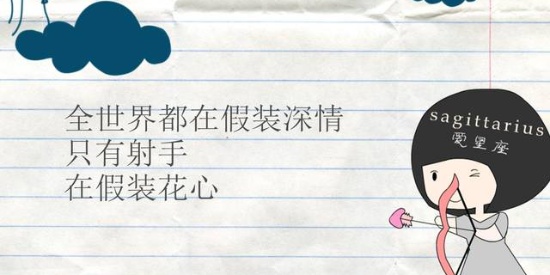 全世界都在假装深情
只有射手
在假装花心
sagittarius
爱星座